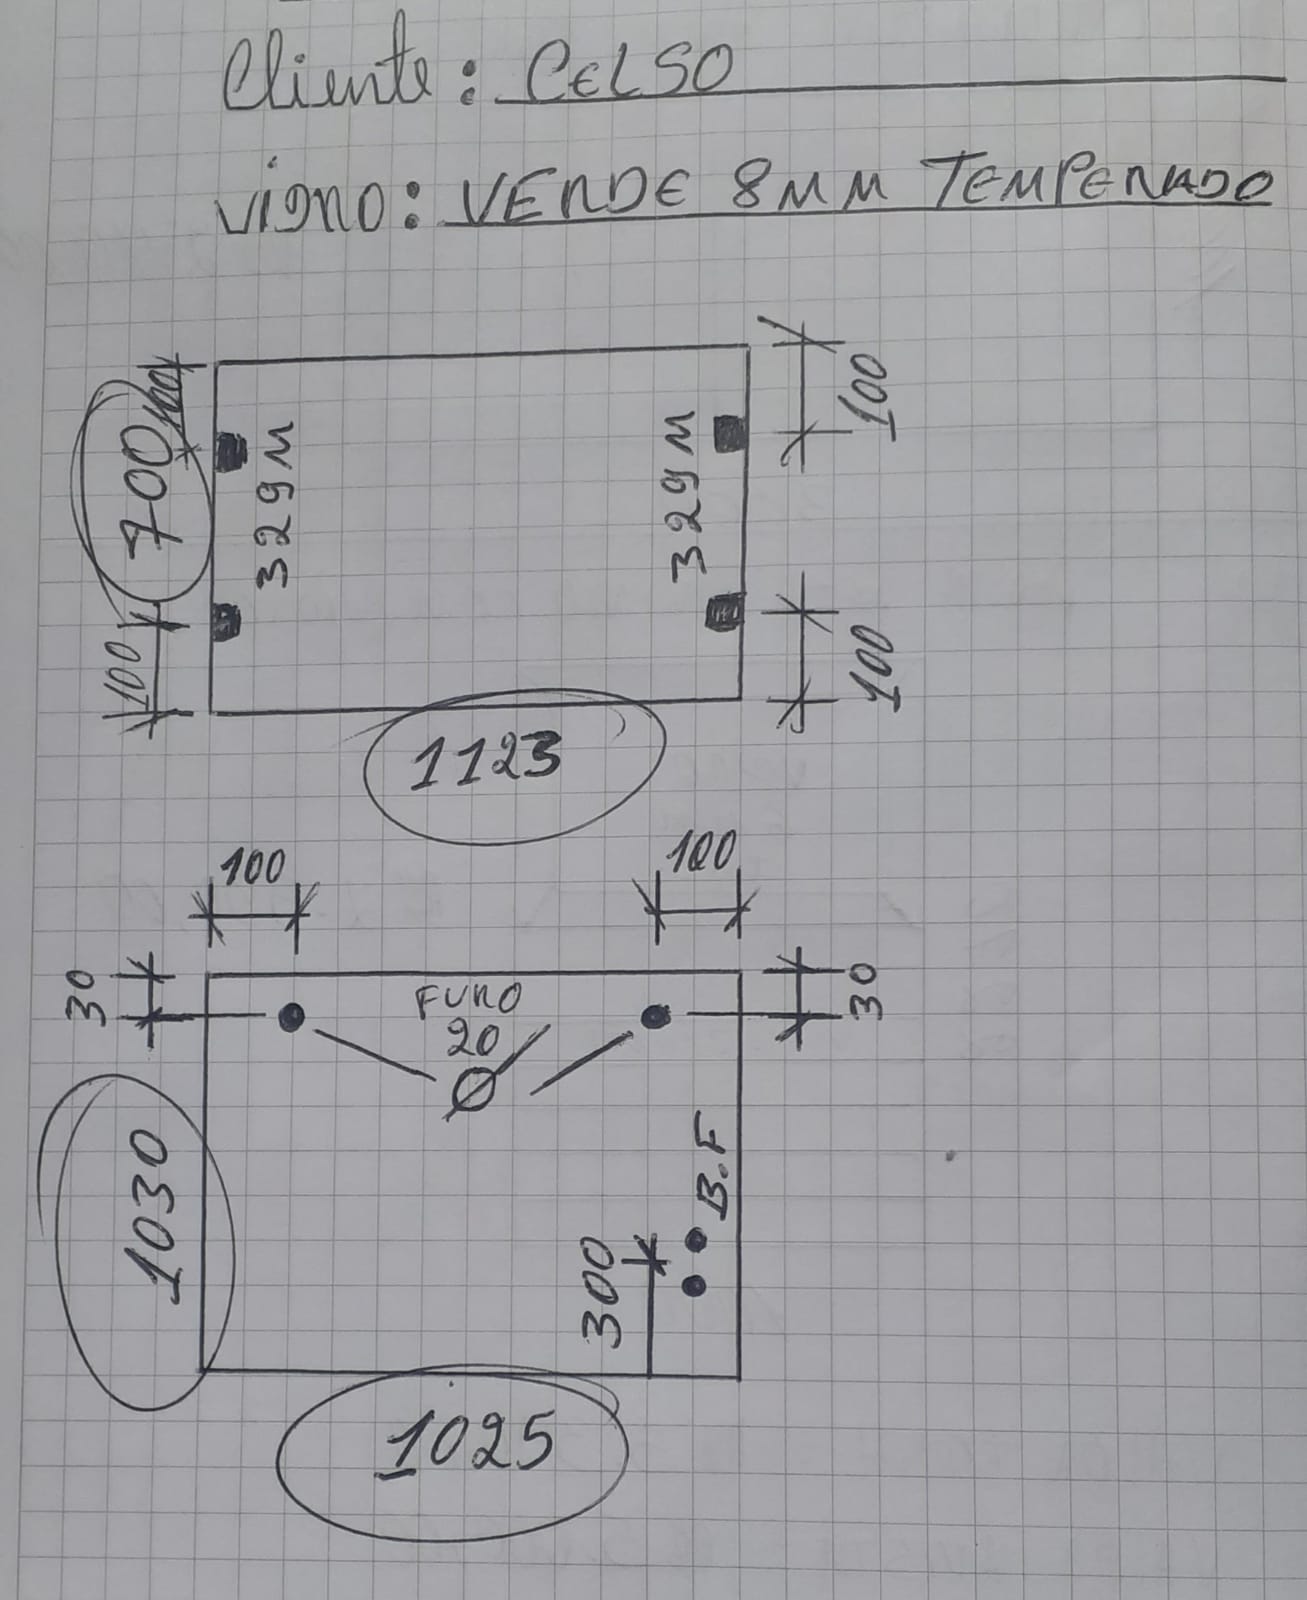 Cliente: CELSO
Vidro: VERDE 8MM TEMPERADO
700
100
329M
329M
100
100
100
1123
100
100
30
FURO
20
Ø
30
1030
B.F
300
1025